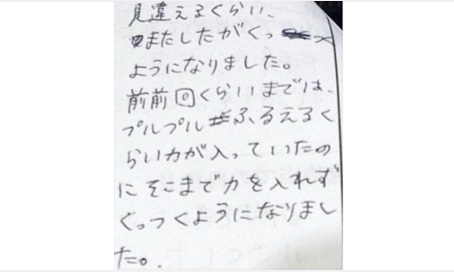 見違えるくらい、
またしたがくっ
ようになりました。
前前回くらいまでは、
プルプルふるえるく
らい力が入っていたの
にそこまで力を入れず
ぐっつくようになりまし
た。